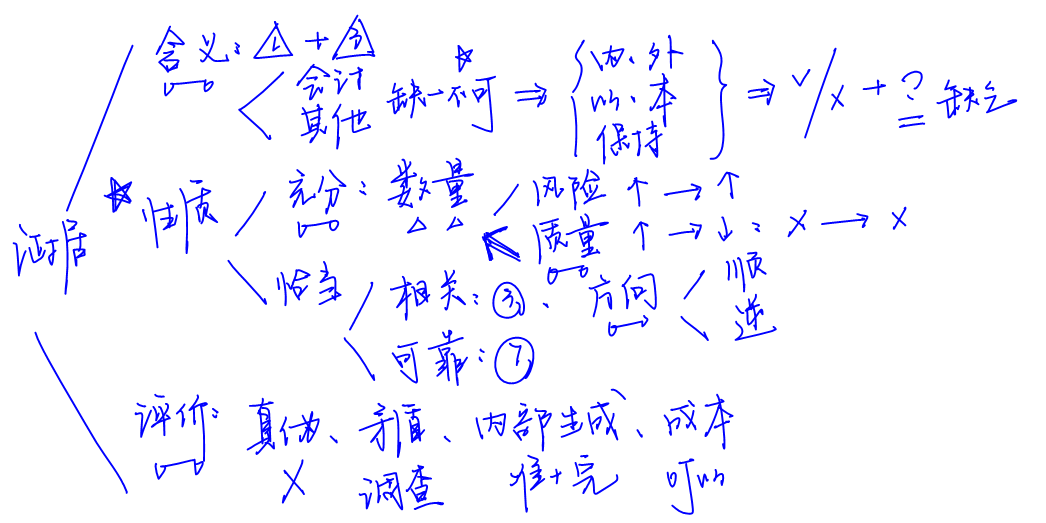 含义：△1 + △3
会计 缺一不可 ⇒ { 内、外 } ⇒ √/× + ? 缺乏
其他 以、本
保持
证据 ☆ 性质 充分：数量 风险 ↑ → ↑
质量 ↑ → ↓：× → ×
恰当 相关：③、方向 顺
逆
可靠：⑦
评价：真伪、矛盾、内部生成、成本
× 调查 准+完 可以